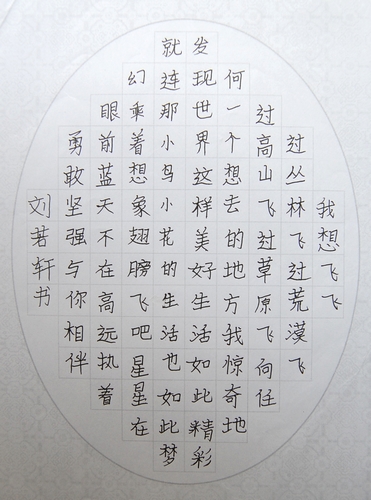 我想飞飞
过丛林飞过荒漠飞
过高山飞过草原飞向任
何一个想去的地方我惊奇地
发现世界这样美好生活如此精彩
就连那小鸟小花的生活也如此梦
幻乘着想象翅膀飞吧星星在
眼前蓝天不在高远执着
勇敢坚强与你相伴
刘若轩书